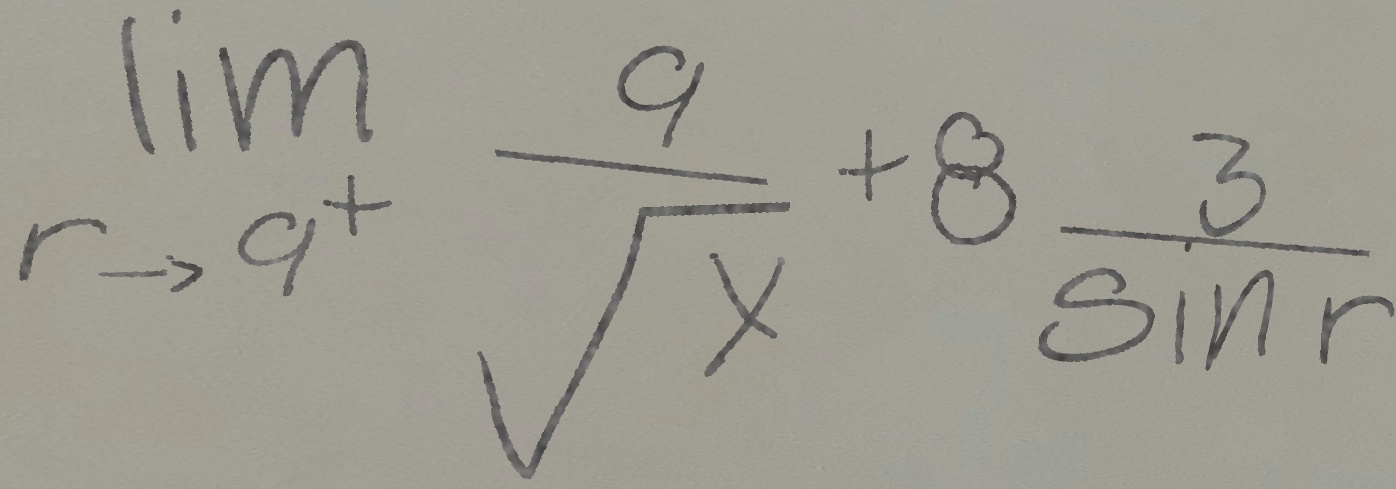 \lim_{r \to 9^+} \frac{9}{\sqrt{x}} + 8 \frac{3}{\sin r}